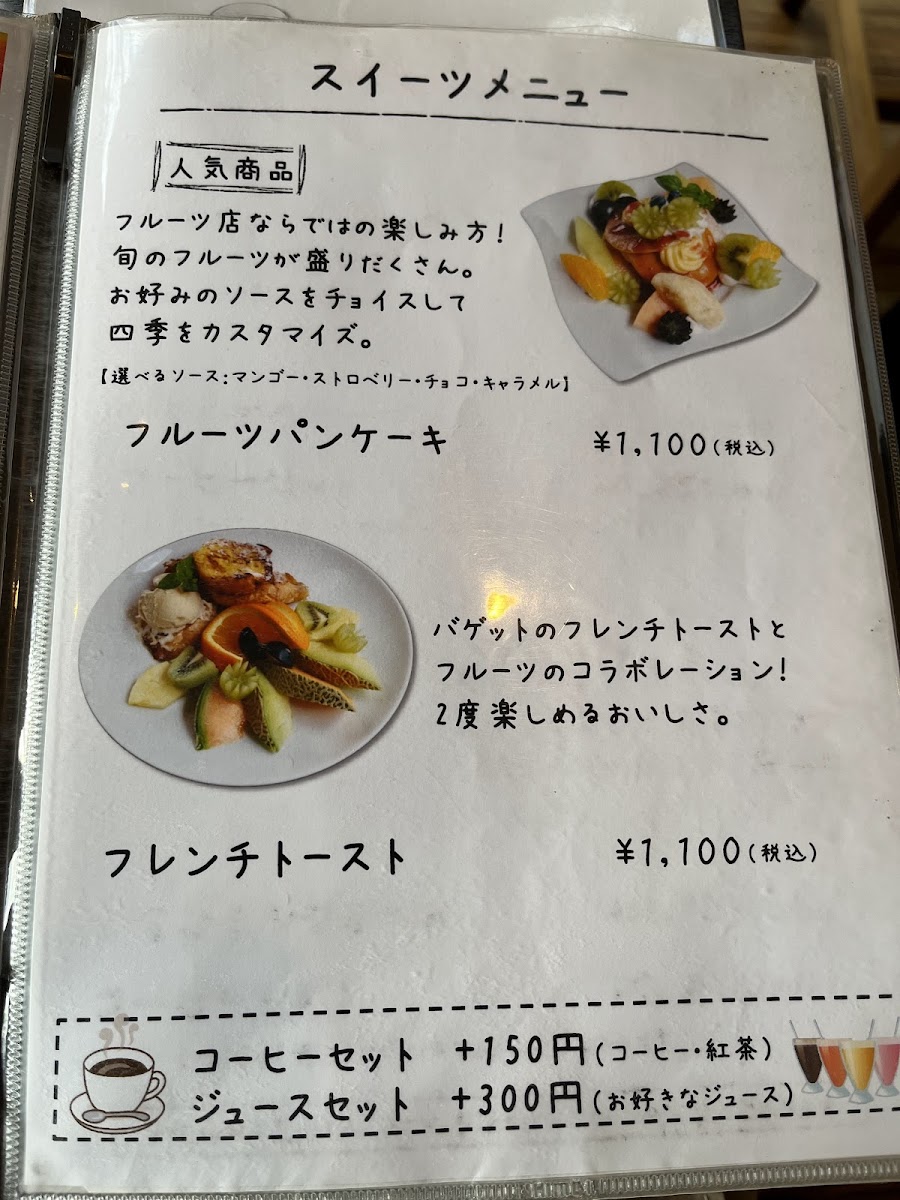 スイーツメニュー
人気商品
フルーツ店ならではの楽しみ方!
旬のフルーツが盛りだくさん。
お好みのソースをチョイスして
四季をカスタマイズ。
【選べるソース:マンゴー・ストロベリー・チョコ・キャラメル】
フルーツパンケーキ ¥1,100(税込)
バゲットのフレンチトーストと
フルーツのコラボレーション!
2度楽しめるおいしさ。
フレンチトースト ¥1,100(税込)
コーヒーセット +150円(コーヒー・紅茶)
ジュースセット +300円(お好きなジュース)